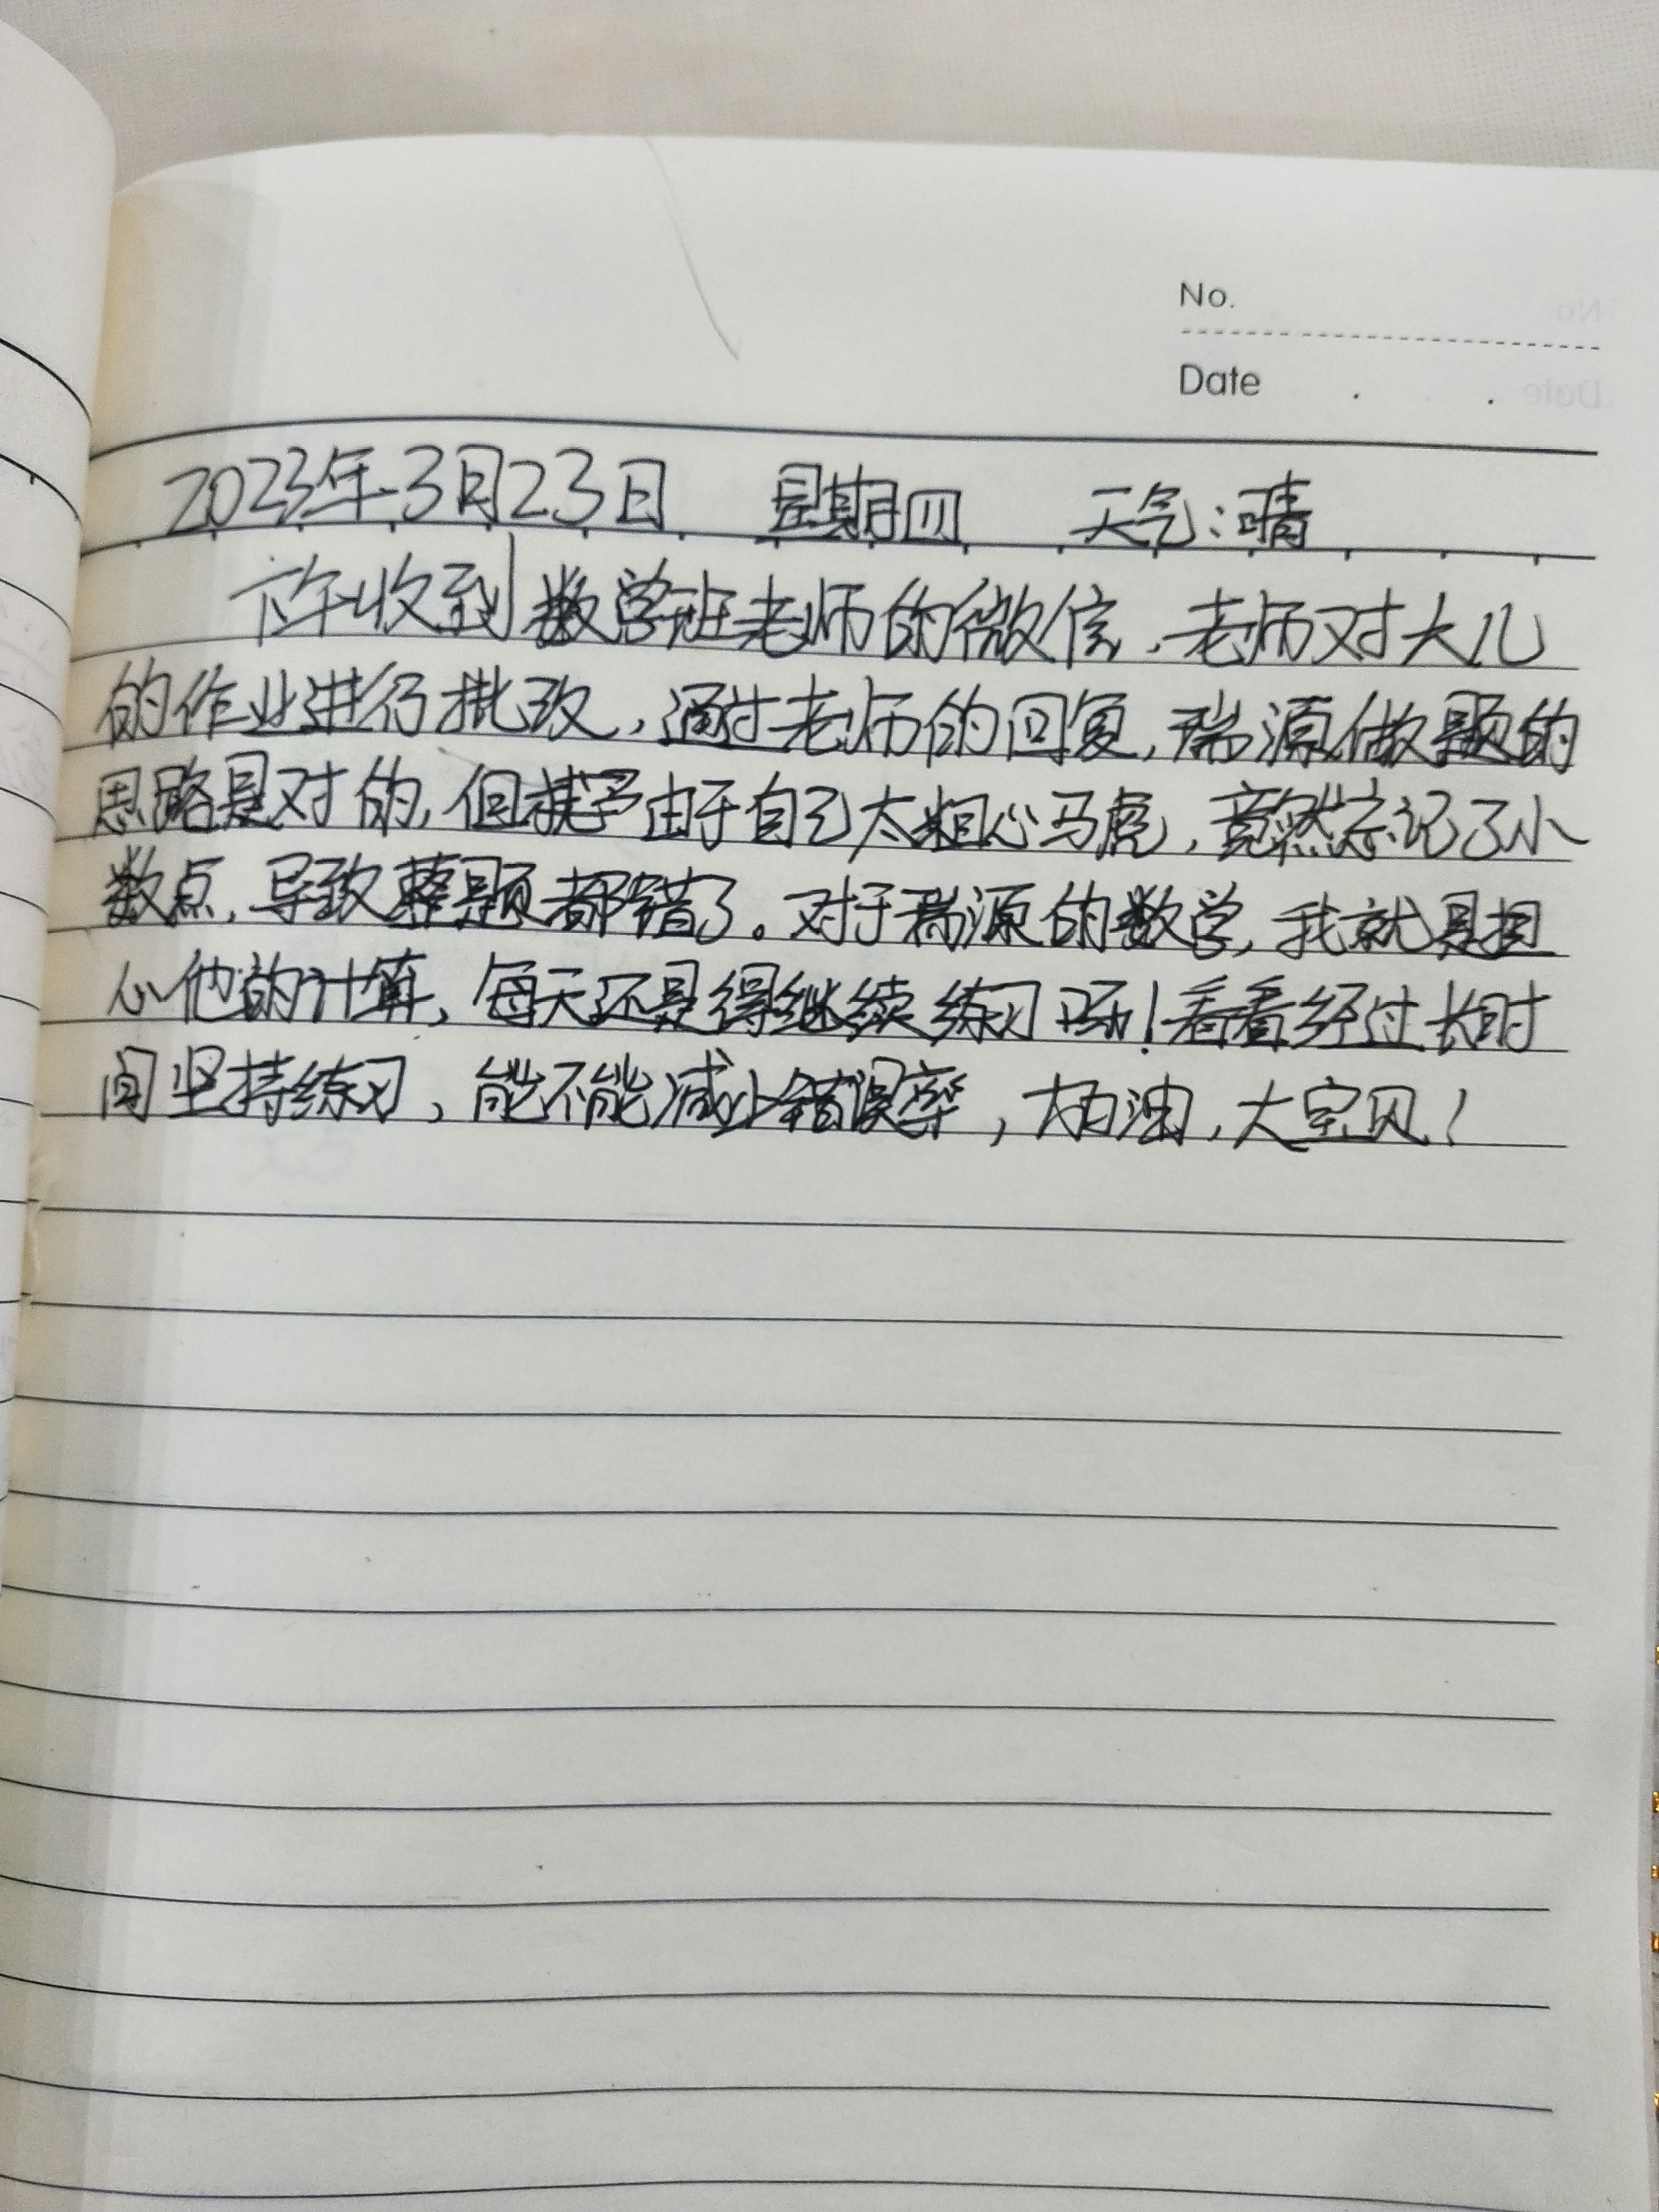 No.
Date
2023年3月23日 星期四 天气:晴
下午收到数学班老师的微信,老师对大儿
的作业进行批改,通过老师的回复,瑞源做题的
思路是对的,但由于自己太粗心马虎,竟然忘记了小
数点,导致整题都错了。对于瑞源的数学,我就是担
心他的计算,每天还是得继续练习哪!看看经过长时
间坚持练习,能不能减少错误率,加油,大宝贝!